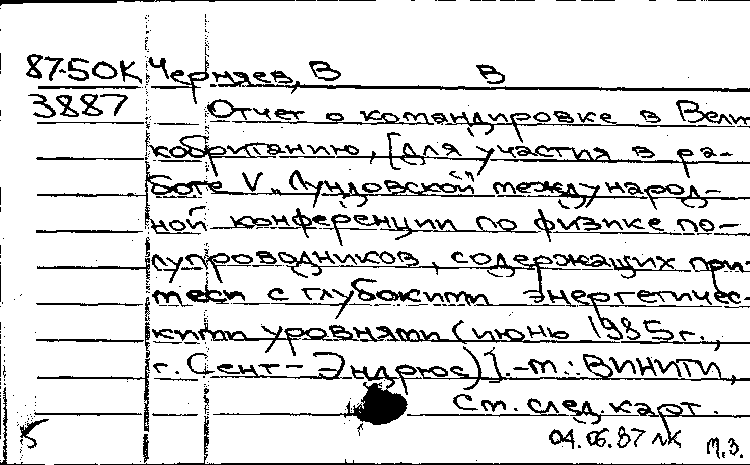 87-5ОК Черняев, В В
3887 Отчет о командировке в Вели
кобританию, [для участия в ра-
боте V „Лундовской" международ-
ной конференции по физике по-
лупроводников, содержащих при-
меси с глубокими энергетичес-
кими уровнями (июнь 1985г.,
г. Сент-Эндрюс)].-м.: ВИНИТИ,
См. след. карт.
5 04.06.87 лк М.З.